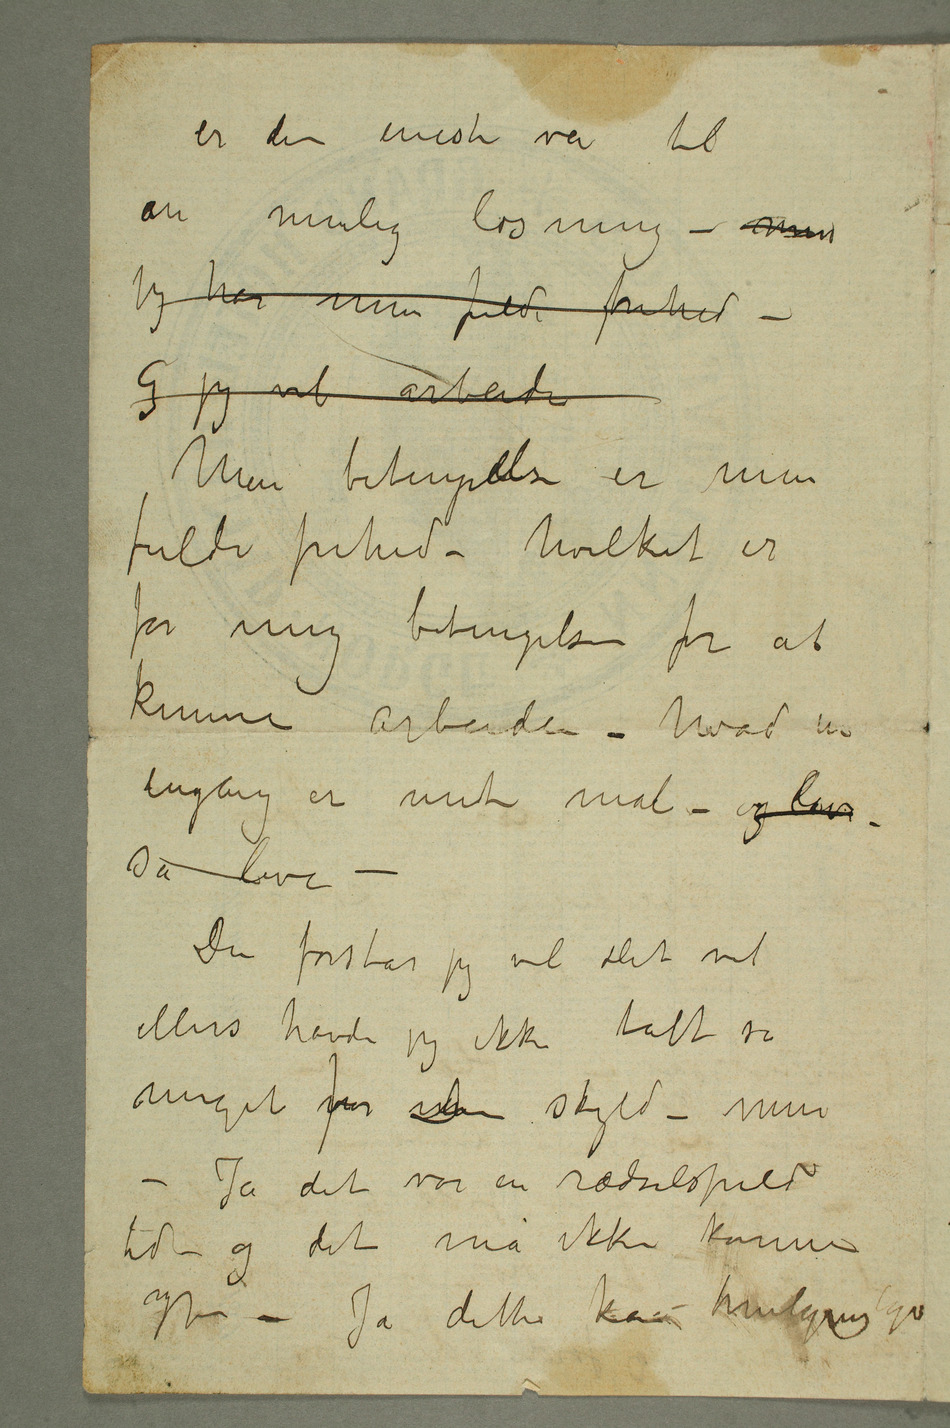 er den eneste vei til
en mulig løsning – men
jeg har min fulde frihed –
Og jeg vil arbeide
Men betingelse er min
fulde frihed – hvilket er
for mig betingelsen for at
kunne arbeide – hvad nu
engang er mit mål – og leve –
så leve –
Du forstår jeg vel det vel
ellers havde jeg ikke talt så
meget for din skyld – men
– Ja det var en rædselsfuld
tid – og det må ikke komme
igjen – Ja dette kan